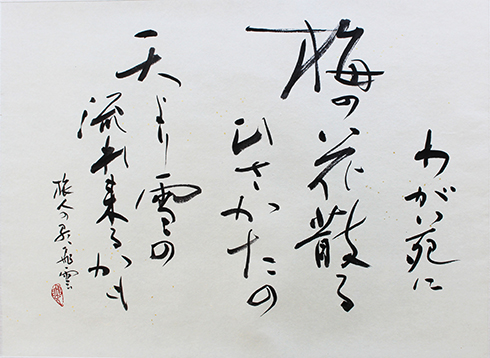 わが苑に
梅の花散る
ひさかたの
天より雪の
流れ来るかも
旅人の 飛雲